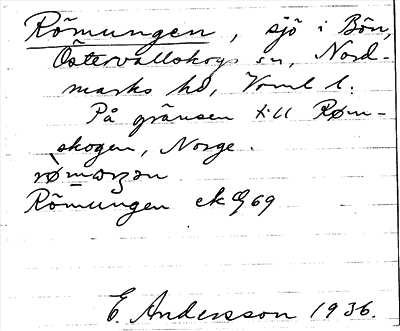 Römungen, sjö i Bön,
Östervallskogs sn, Nord-
marks hd, Vrml l.
På gränsen till Røm-
skogen, Norge.
Römungen ek 69
E. Andersson 1936.